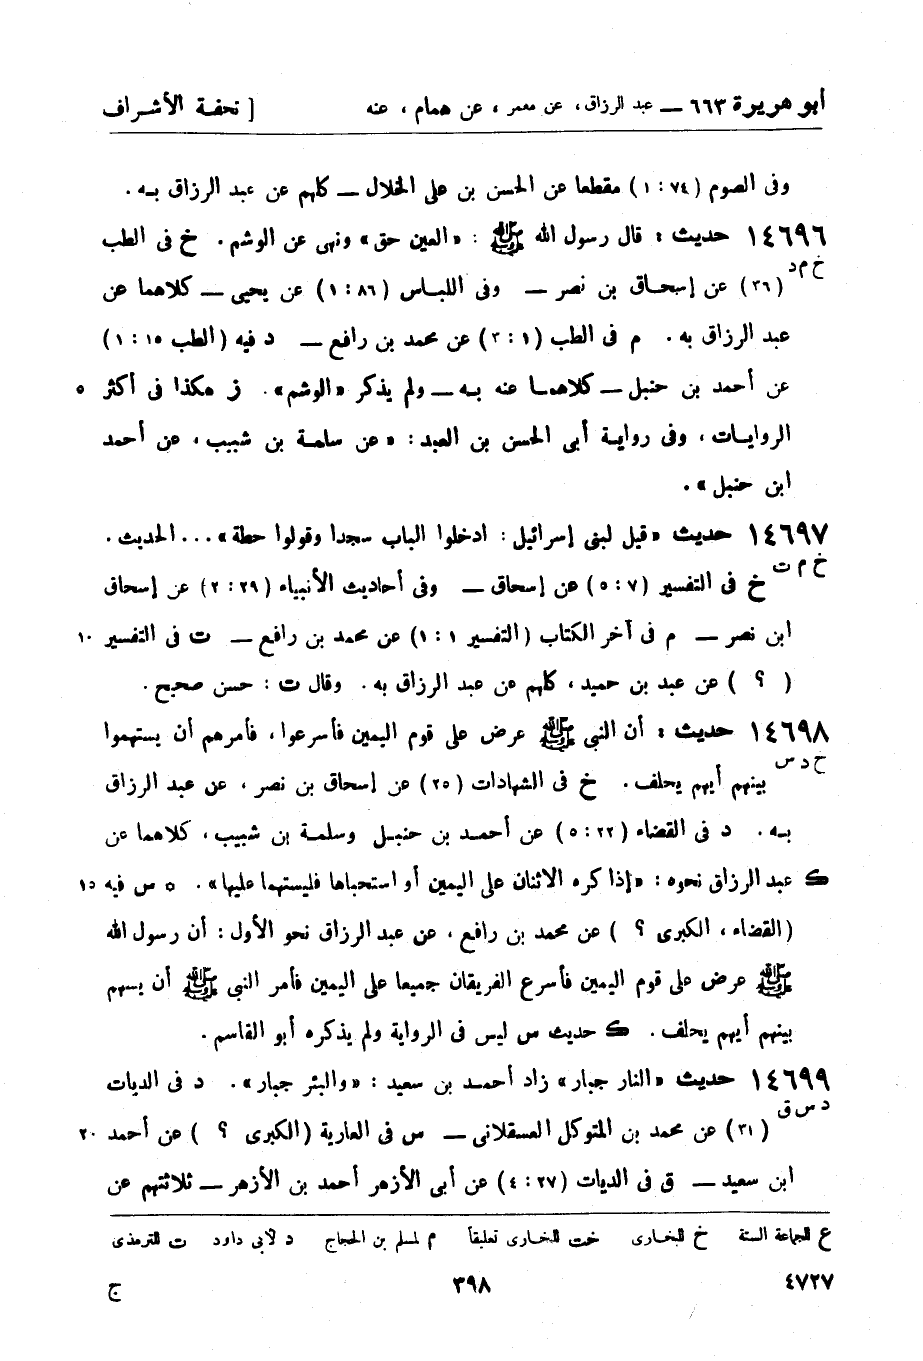 أبو هريرة ٦٦٣ — عبد الرزاق، عن معمر، عن همام، عنه [ تحفة الأشراف
وفى الصوم (٧٤ : ١) مقطعا عن الحسن بن على الخلال — كلهم عن عبد الرزاق به.
١٤٦٩٦ حديث : قال رسول الله ﷺ : «العين حق» ونهى عن الوشم. خ فى الطب
خ م د
(٣٦) عن إسحاق بن نصر — وفى اللباس (٨٦ : ١) عن يحيى — كلاهما عن
عبد الرزاق به. م فى الطب (١ : ٢) عن محمد بن رافع — د فيه (الطب ١٥ : ١)
عن أحمد بن حنبل — كلاهما عنه به — ولم يذكر «الوشم». ز هكذا فى أكثر ٥
الروايات، وفى رواية أبى الحسن بن العبد : «عن سلمة بن شبيب، عن أحمد
ابن حنبل».
١٤٦٩٧ حديث «قيل لبنى إسرائيل : ادخلوا الباب سجدا وقولوا حطة» ... الحديث.
خ م ت
خ فى التفسير (٧ : ٥) عن إسحاق — وفى أحاديث الأنبياء (٢٩ : ٢) عن إسحاق
ابن نصر — م فى آخر الكتاب (التفسير ١ : ١) عن محمد بن رافع — ت فى التفسير ١٠
( ؟ ) عن عبد بن حميد، كلهم عن عبد الرزاق به. وقال ت : حسن صحيح.
١٤٦٩٨ حديث : أن النبى ﷺ عرض على قوم اليمين فأسرعوا، فأمرهم أن يستهموا
خ د س
بينهم أيهم يحلف. خ فى الشهادات (٢٥) عن إسحاق بن نصر، عن عبد الرزاق
به. د فى القضاء (٢٢ : ٥) عن أحمد بن حنبل وسلمة بن شبيب، كلاهما عن
ك عبد الرزاق نحوه : «إذا كره الاثنان على اليمين أو استحباها فليستهما عليها». ٥ س فيه ١٥
(القضاء، الكبرى ؟ ) عن محمد بن رافع، عن عبد الرزاق نحو الأول : أن رسول الله
ﷺ عرض على قوم اليمين فأسرع الفريقان جميعا على اليمين فأمر النبى ﷺ أن يسهم
بينهم أيهم يحلف. ك حديث س ليس فى الرواية ولم يذكره أبو القاسم.
١٤٦٩٩ حديث «النار جبار» زاد أحمد بن سعيد : «والبئر جبار». د فى الديات
د س ق
(٣١) عن محمد بن المتوكل العسقلانى — س فى العارية (الكبرى ؟ ) عن أحمد ٢٠
ابن سعيد — ق فى الديات (٢٧ : ٤) عن أبى الأزهر أحمد بن الأزهر — ثلاثتهم عن
ع للجماعة الستة خ للبخارى خت للبخارى تعليقاً م لمسلم بن الحجاج د لأبى داود ت للترمذى
٤٧٢٧ ٣٩٨ ج